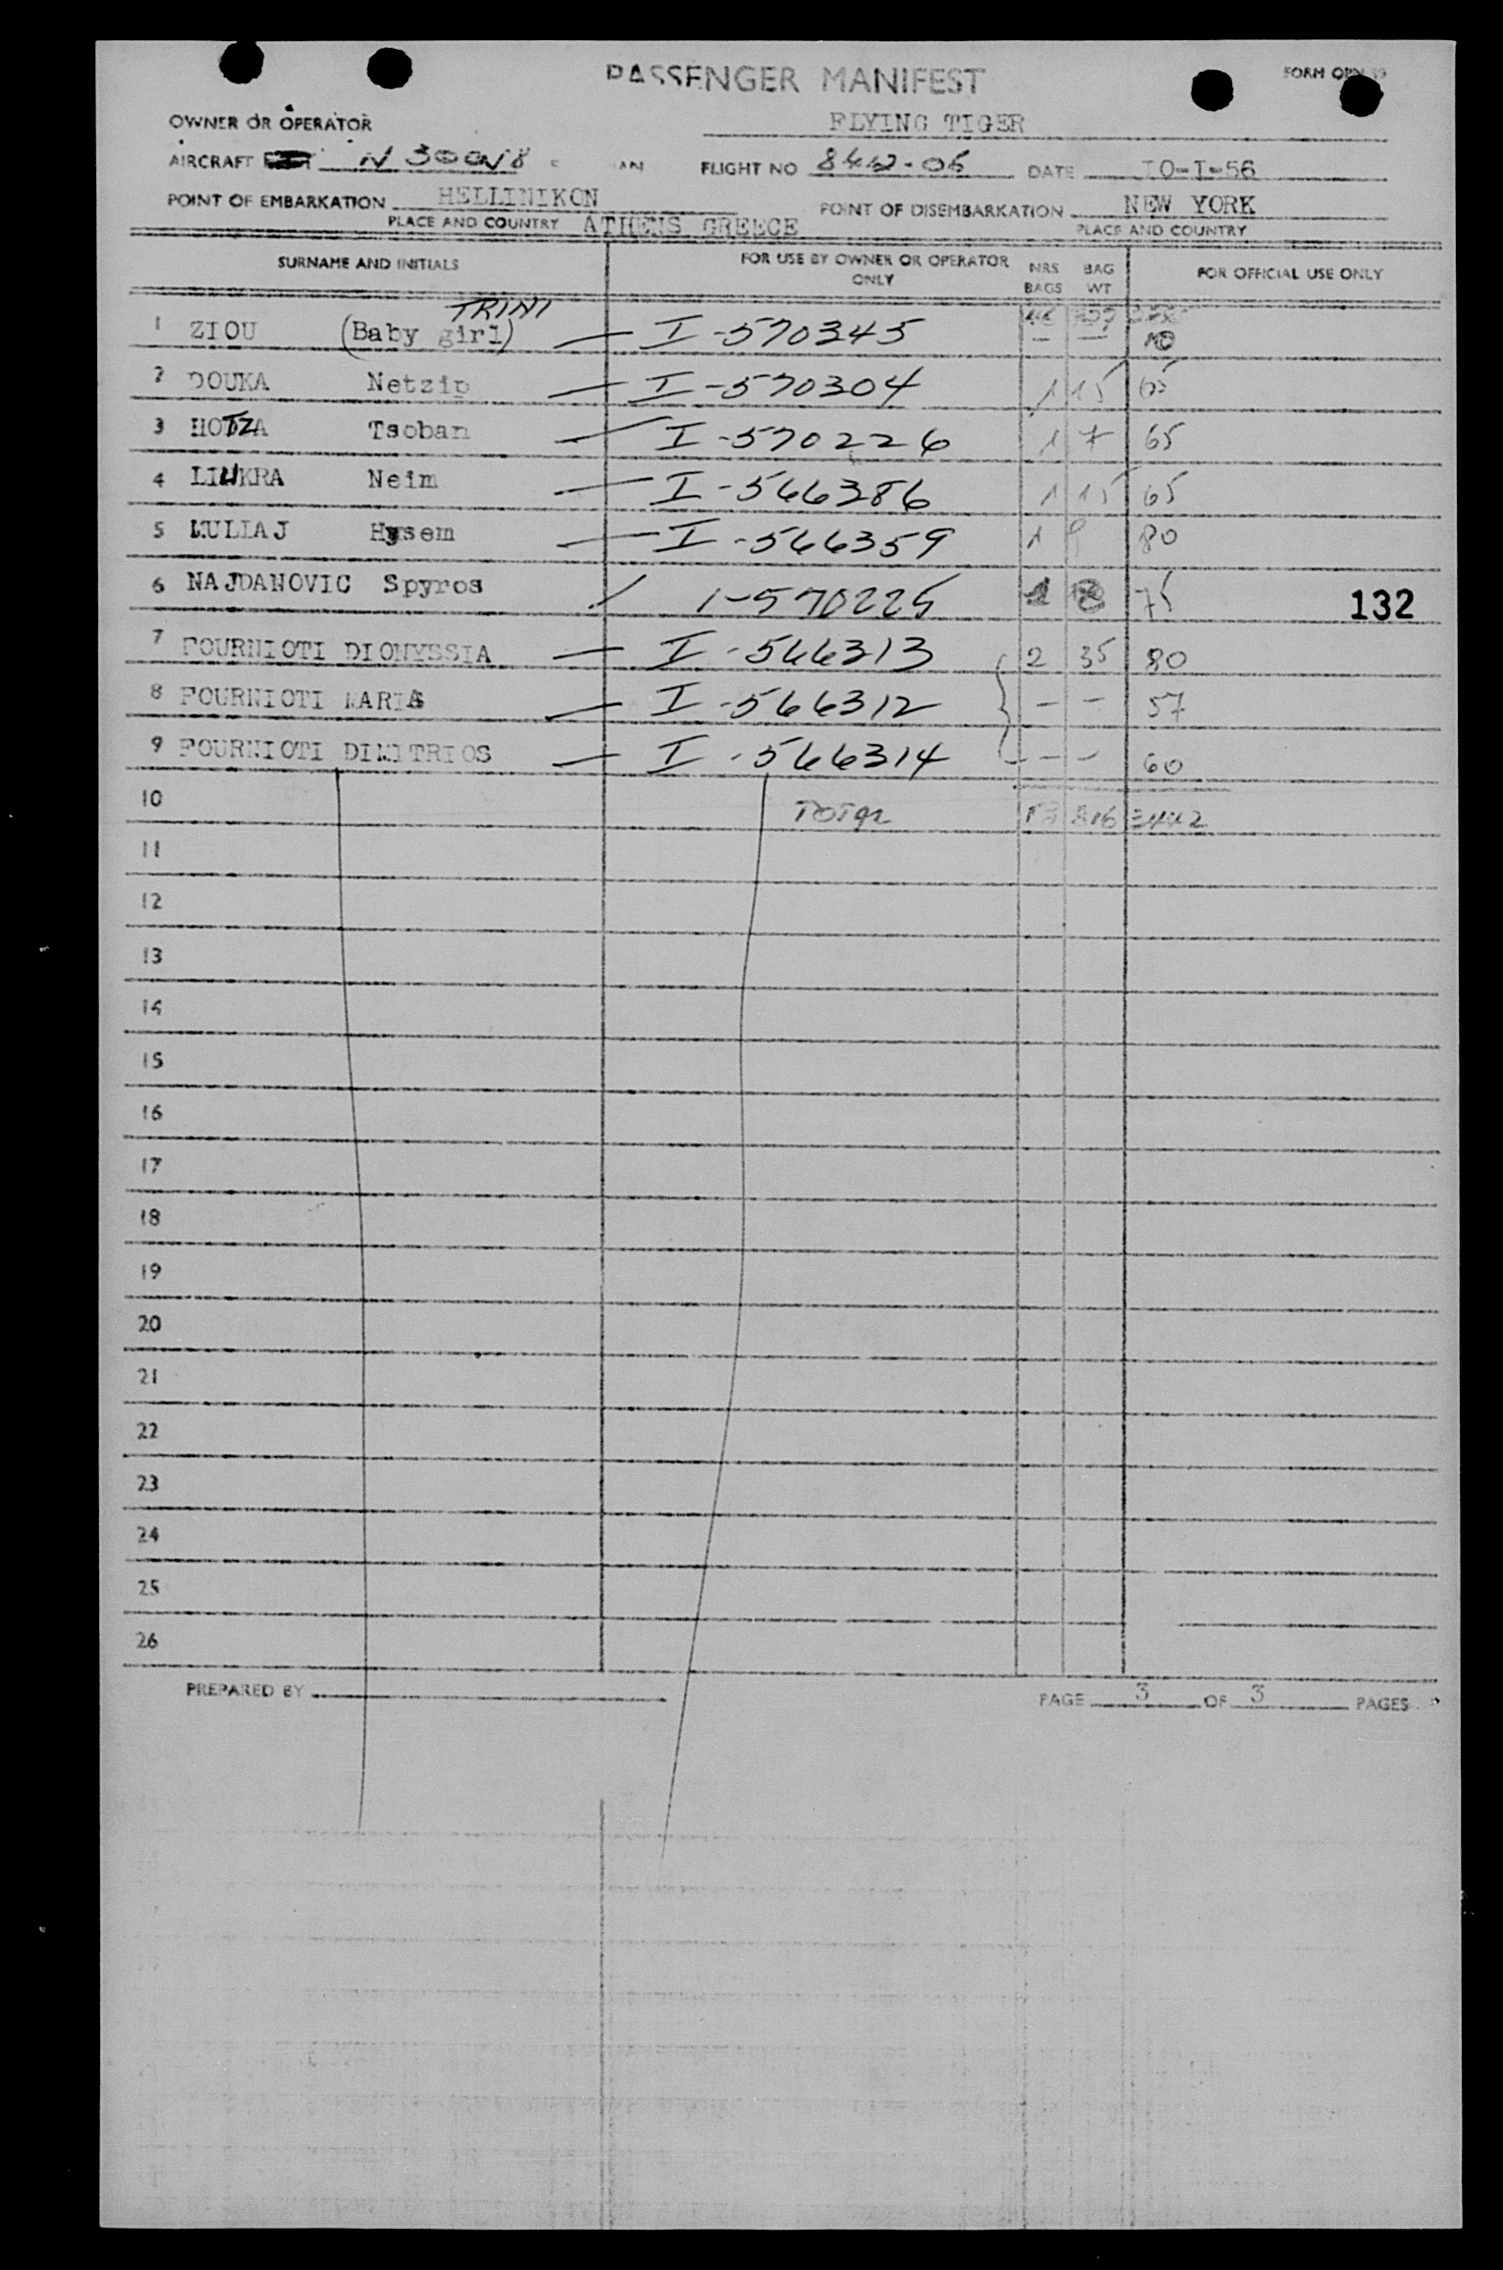 PASSENGER MANIFEST
FORM OPN
OWNER OR OPERATOR FLYING TIGER
AIRCRAFT N 3000N8 FLIGHT NO DATE IO-I-56
POINT OF EMBARKATION HELLINIKON POINT OF DISEMBARKATION NEW YORK
PLACE AND COUNTRY ATHENS GREECE PLACE AND COUNTRY
SURNAME AND INITIALS FOR USE BY OWNER OR OPERATOR ONLY NRS BAGS BAG WT FOR OFFICIAL USE ONLY
TRINI
1 ZIOU (Baby girl) — I-570345 — — 10
2 DOUKA Netzip — I-570304 1 15 65
3 HOTZA Tsoban — I-570226 1 7 65
4 LIUKRA Neim — I-566386 1 15 65
5 MULLAJ Hysem — I-566359 1 9 80
6 NAJDANOVIC Spyros / 1-570225 1 75 132
7 FOURNIOTI DIONYSSIA — I-566313 2 35 80
8 FOURNIOTI MARIA — I-566312 - - 57
9 FOURNIOTI DIMITRIOS — I-566314 - - 60
10 TOTAL 53 3442
11
12
13
14
15
16
17
18
19
20
21
22
23
24
25
26
PREPARED BY PAGE 3 OF 3 PAGES